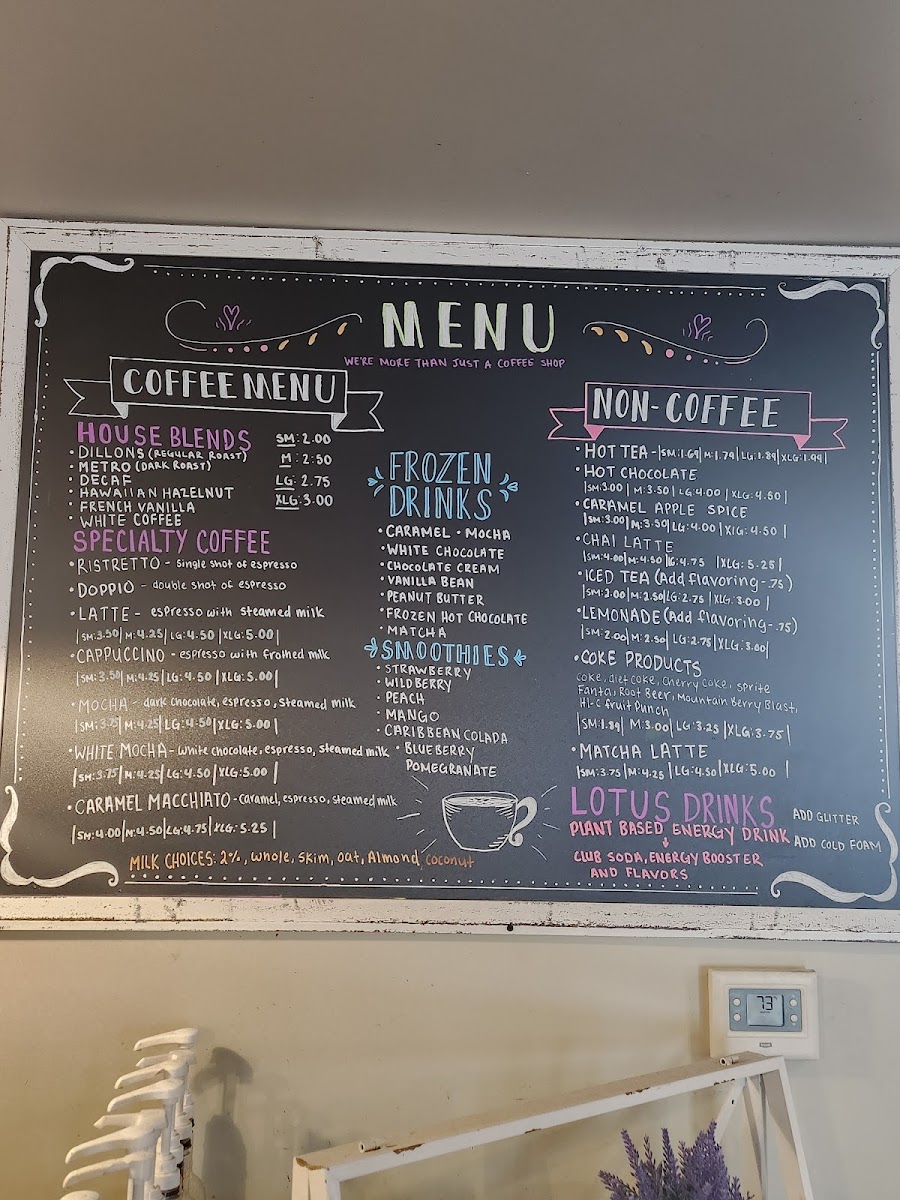 MENU
WE'RE MORE THAN JUST A COFFEE SHOP
COFFEE MENU
HOUSE BLENDS
• DILLONS (REGULAR ROAST)
• METRO (DARK ROAST)
• DECAF
• HAWAIIAN HAZELNUT
• FRENCH VANILLA
• WHITE COFFEE
SM: 2.00
M: 2:50
LG: 2.75
XLG: 3.00
SPECIALTY COFFEE
• RISTRETTO - Single shot of espresso
• DOPPIO - double shot of espresso
• LATTE - espresso with steamed milk
|SM:3.50|M:4.25|LG:4.50|XLG:5.00|
• CAPPUCCINO - espresso with frothed milk
|SM:3.50|M:4.25|LG:4.50|XLG:5.00|
• MOCHA - dark chocolate, espresso, steamed milk
|SM:3.75|M:4.25|LG:4.50|XLG:5.00|
• WHITE MOCHA - white chocolate, espresso, steamed milk
|SM:3.75|M:4.25|LG:4.50|XLG:5.00|
• CARAMEL MACCHIATO - caramel, espresso, steamed milk
|SM:4.00|M:4.50|LG:4.75|XLG:5.25|
MILK CHOICES: 2%, whole, skim, oat, Almond, coconut
FROZEN
DRINKS
• CARAMEL • MOCHA
• WHITE CHOCOLATE
• CHOCOLATE CREAM
• VANILLA BEAN
• PEANUT BUTTER
• FROZEN HOT CHOCOLATE
• MATCHA
SMOOTHIES
• STRAWBERRY
• WILDBERRY
• PEACH
• MANGO
• CARIBBEAN COLADA
• BLUEBERRY
POMEGRANATE
NON-COFFEE
• HOT TEA - |SM:1.69|M:1.79|LG:1.89|XLG:1.99|
• HOT CHOCOLATE
|SM:3.00|M:3.50|LG:4.00|XLG:4.50|
• CARAMEL APPLE SPICE
|SM:3.00|M:3.50|LG:4.00|XLG:4.50|
• CHAI LATTE
|SM:4.00|M:4.50|LG:4.75|XLG:5.25|
• ICED TEA (Add flavoring-.75)
|SM:2.00|M:2.50|LG:2.75|XLG:3.00|
• LEMONADE (Add flavoring-.75)
|SM:2.00|M:2.50|LG:2.75|XLG:3.00|
• COKE PRODUCTS
Coke, diet Coke, Cherry Coke, sprite
Fanta, Root Beer, Mountain Berry Blast,
Hi-C fruit Punch
|SM:1.89|M:3.00|LG:3.25|XLG:3.75|
• MATCHA LATTE
|SM:3.75|M:4.25|LG:4.50|XLG:5.00|
LOTUS DRINKS
PLANT BASED ENERGY DRINK
CLUB SODA, ENERGY BOOSTER
AND FLAVORS
ADD GLITTER
ADD COLD FOAM
73°